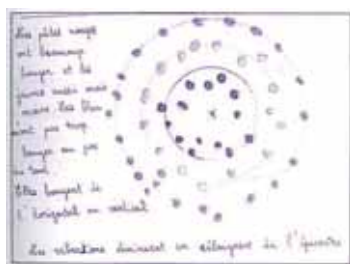 Les pâtes rouge
ont beaucoup
bouger et les
jaunes aussi mais
moins les bleu
sont pas trop
bouger ou pas
du tout.
Elles bougent de
l'horizontal au vertical
Les vibrations diminuent en éloignant de l'épicentre